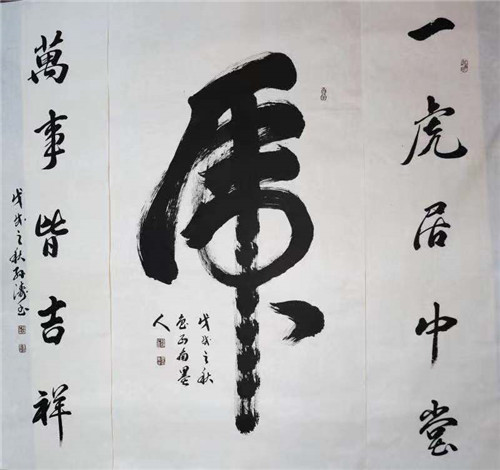 一虎居中堂
虎
戊戌之秋
墨
人
萬事皆吉祥
戊戌之秋